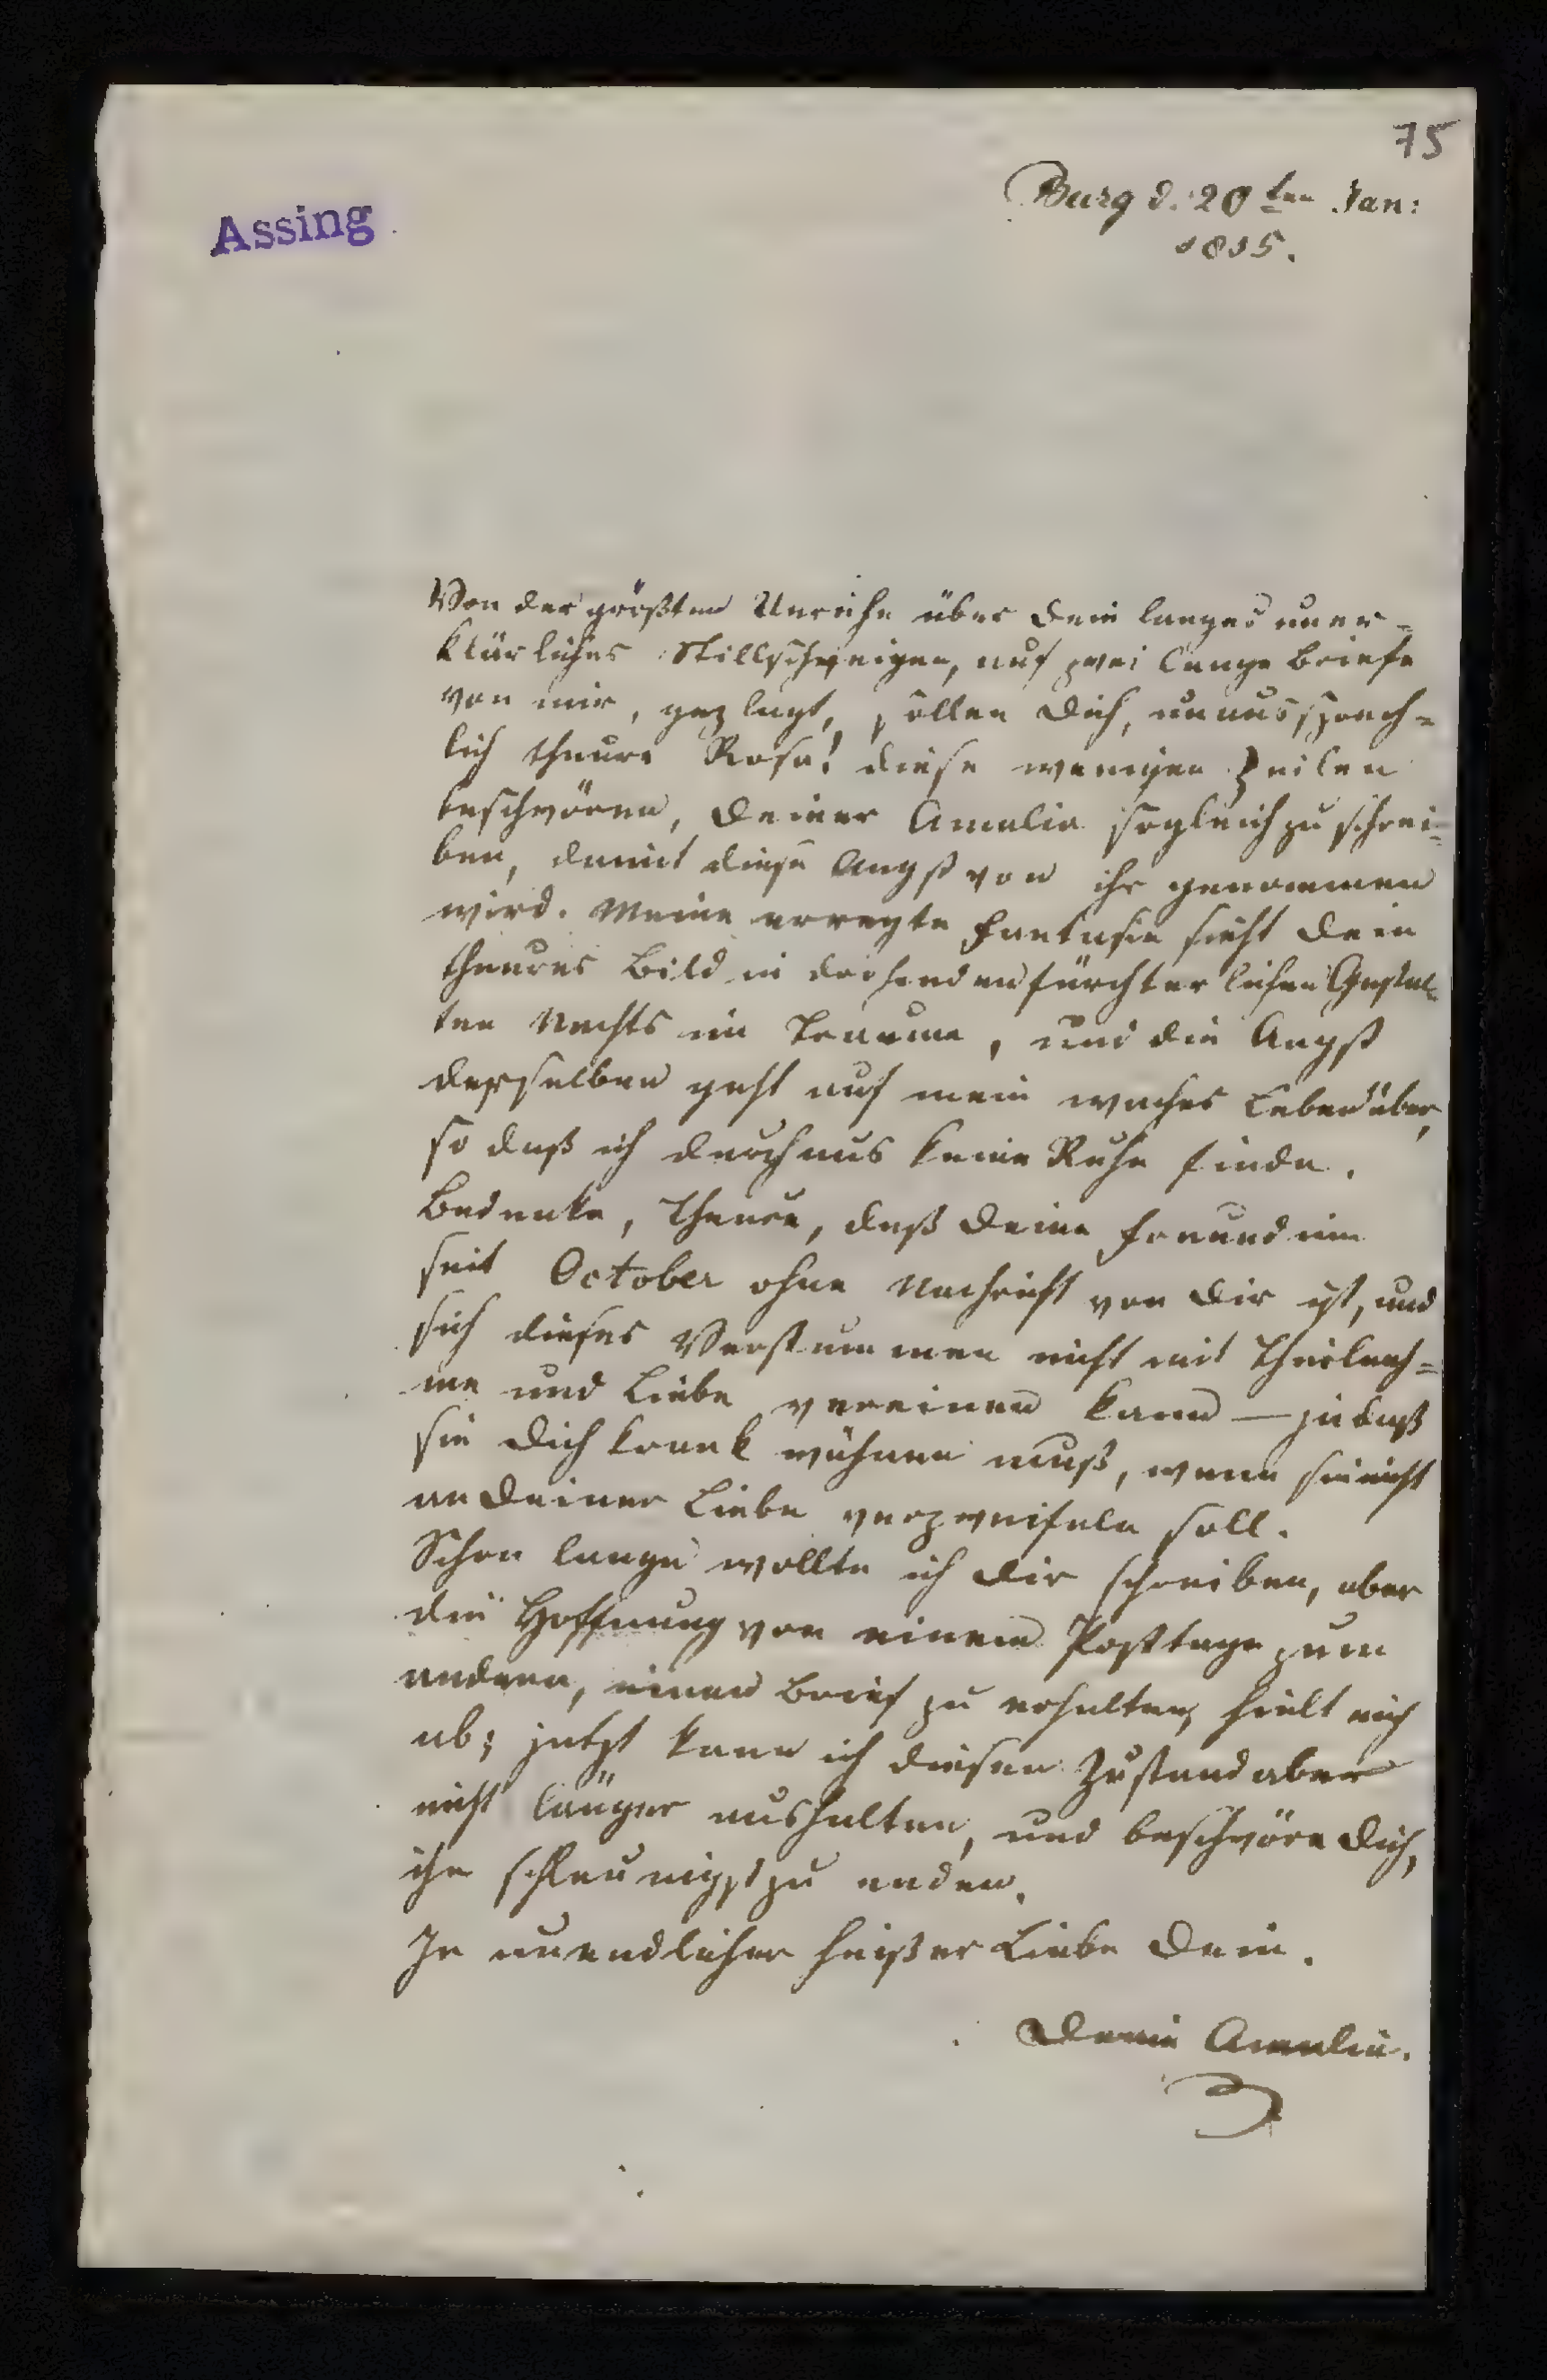 75
Burg d. 20ten Jan:
1815.
Assing
Von der größten Unruhe über Dein langes uner=
klärliches Stillschweigen, auf zwei lange Briefe
von mir, geplagt, sollen Dich, unaussprech=
lich theure Rosa! diese wenigen Zeilen
beschwören, Deiner Amalia sogleich zu schrei=
ben, damit diese Angst von ihr genommen
wird. Meine erregte Fantasie sieht Dein
theures Bild in drohenden fürchterlichen Gestal=
ten Nachts im Traume, und die Angst
desselben geht auf mein waches Leben über,
so daß ich durchaus keine Ruhe finde.
Bedenke, Theure, daß Deine Freundinn
seit October ohne Nachricht von Dir ist, und
sich dieses Verstummen nicht mit Theilnah=
me und Liebe vereinen kann — so daß
sie Dich krank wähnen muß, wenn sie nicht
an Deiner Liebe verzweifeln soll.
Schon lange wollte ich Dir schreiben, aber
die Hoffnung von einem Posttage zum
andern, einen Brief zu erhalten, hielt mich
ab; jetzt kann ich diesen Zustand aber
nicht länger aushalten, und beschwöre Dich,
ihn schleunigst zu enden.
In unendlicher heißer Liebe Dein.
Deine Amalia.